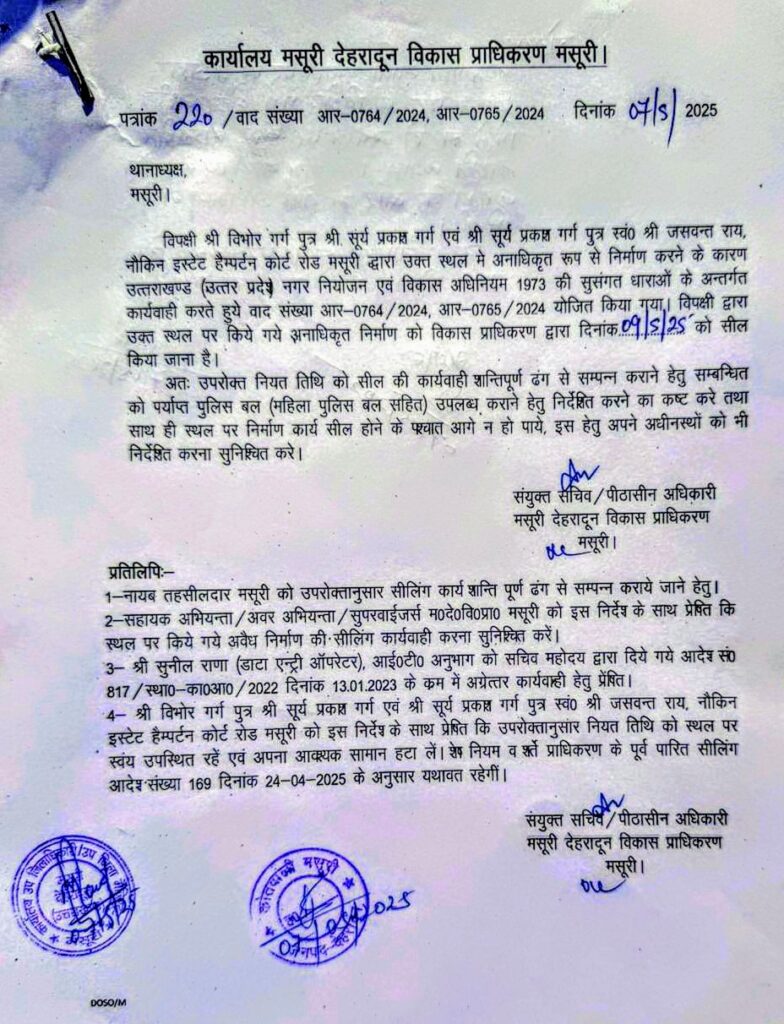 कार्यालय मसूरी देहरादून विकास प्राधिकरण मसूरी।
पत्रांक 220 / वाद संख्या आर-0764/2024, आर-0765/2024 दिनांक 07/5/ 2025
थानाध्यक्ष,
मसूरी।
विपक्षी श्री विभोर गर्ग पुत्र श्री सूर्य प्रकाश गर्ग एवं श्री सूर्य प्रकाश गर्ग पुत्र स्वं0 श्री जसवन्त राय,
नौकिन इस्टेट हैम्पर्टन कोर्ट रोड मसूरी द्वारा उक्त स्थल मे अनाधिकृत रूप से निर्माण करने के कारण
उत्तराखण्ड (उत्तर प्रदेश) नगर नियोजन एवं विकास अधिनियम 1973 की सुसंगत धाराओं के अन्तर्गत
कार्यवाही करते हुये वाद संख्या आर-0764/2024, आर-0765/2024 योजित किया गया। विपक्षी द्वारा
उक्त स्थल पर किये गये अनाधिकृत निर्माण को विकास प्राधिकरण द्वारा दिनांक 09/5/25 को सील
किया जाना है।
अतः उपरोक्त नियत तिथि को सील की कार्यवाही शान्तिपूर्ण ढंग से सम्पन्न कराने हेतु सम्बन्धित
को पर्याप्त पुलिस बल (महिला पुलिस बल सहित) उपलब्ध कराने हेतु निर्देशित करने का कष्ट करे तथा
साथ ही स्थल पर निर्माण कार्य सील होने के पश्चात आगे न हो पाये, इस हेतु अपने अधीनस्थों को भी
निर्देशित करना सुनिश्चित करे।
संयुक्त सचिव/पीठासीन अधिकारी
मसूरी देहरादून विकास प्राधिकरण
मसूरी।
प्रतिलिपिः-
1-नायब तहसीलदार मसूरी को उपरोक्तानुसार सीलिंग कार्य शान्ति पूर्ण ढंग से सम्पन कराये जाने हेतु।
2-सहायक अभियन्ता/अवर अभियन्ता/सुपरवाईजर्स म0दे0वि0प्रा0 मसूरी को इस निर्देश के साथ प्रेषित कि
स्थल पर किये गये अवैध निर्माण की सीलिंग कार्यवाही करना सुनिश्चित करें।
3- श्री सुनील राणा (डाटा एन्ट्री ऑपरेटर), आई0टी0 अनुभाग को सचिव महोदय द्वारा दिये गये आदेश सं0
817/स्था0-का0आ0/2022 दिनांक 13.01.2023 के कम में अग्रेत्तर कार्यवाही हेतु प्रेषित।
4- श्री विभोर गर्ग पुत्र श्री सूर्य प्रकाश गर्ग एवं श्री सूर्य प्रकाश गर्ग पुत्र स्वं0 श्री जसवन्त राय, नौकिन
इस्टेट हैम्पर्टन कोर्ट रोड मसूरी को इस निर्देश के साथ प्रेषित कि उपरोक्तानुसार नियत तिथि को स्थल पर
स्वंय उपस्थित रहें एवं अपना आवश्यक सामान हटा लें। शेष नियम व शर्ते प्राधिकरण के पूर्व पारित सीलिंग
आदेश संख्या 169 दिनांक 24-04-2025 के अनुसार यथावत रहेगीं।
संयुक्त सचिव/पीठासीन अधिकारी
मसूरी देहरादून विकास प्राधिकरण
मसूरी।
कोतवाली मसूरी
07/05/2025
DOSO/M